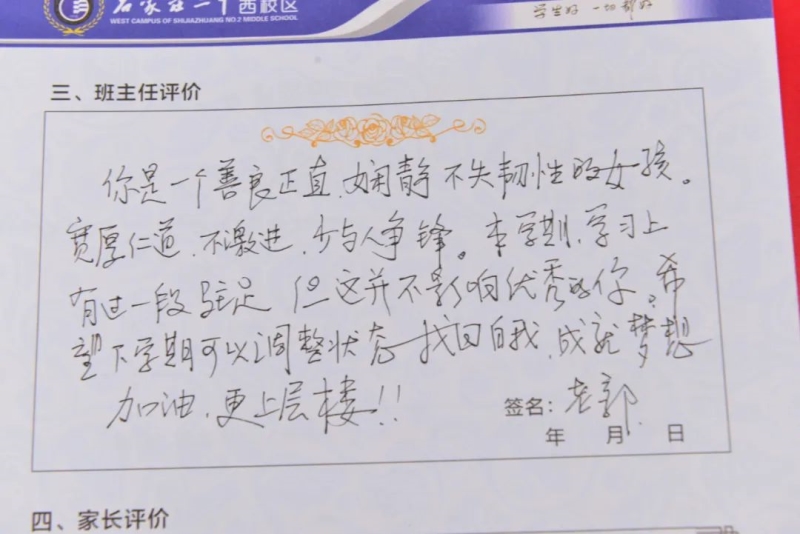 西校区
WEST CAMPUS OF SHIJIAZHUANG NO.2 MIDDLE SCHOOL
学生好 一切都好
三、班主任评价
你是一个善良正直、娴静不失韧性的女孩。
宽厚仁道、不激进、少与人争锋。本学期,学习上
有过一段驻足 但这并不影响优秀的你。希
望下学期可以调整状态 找回自我、成就梦想
加油、更上层楼!!
签名:老郭
年 月 日
四、家长评价